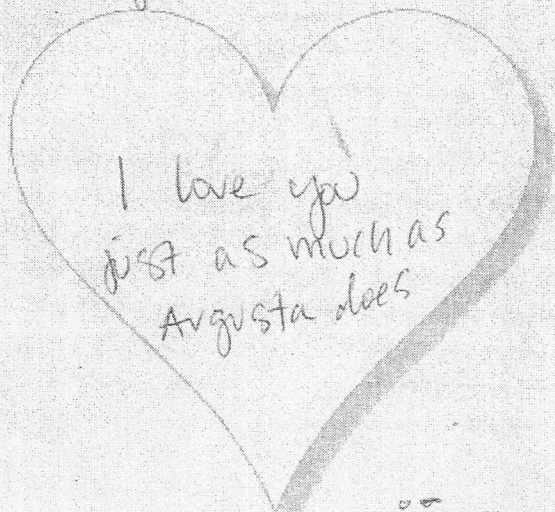 I love you
just as much as
Augusta does